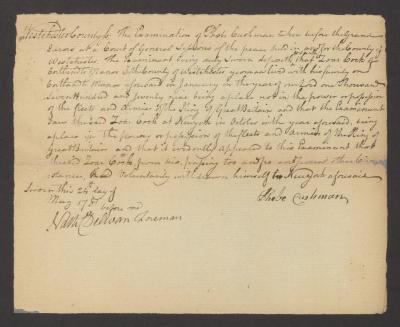 Westchester County ss. The Examination of Phebe Cushman taken before the Grand
Jurors at a Court of General Sessions of the peace held in and for the County of
Westchester. The Examinant being duly Sworn deposeth, that Cock of
Cortlandt Manor & County of Westchester yeoman lived with his family on
Cortlandt Manor aforesaid in January in the year of our Lord one Thousand
Seven Hundred and Seventy nine being a place not in the power or possession
of the fleets and Armies of the King of Great Britain and that the Examinant
Saw the said Cock at in October with the year aforesaid, being
a place in the power or possession of the fleets and Armies of the King of
Great Britain and that it evidently appeared to this Examinant that
the said Cock from his passing too and fro and from other Circum
stances, had Voluntarily withdrawn himself to aforesaid
Sworn this 24th day of
May 1781 before me
Phebe Cushman
Nath Delivan Foreman